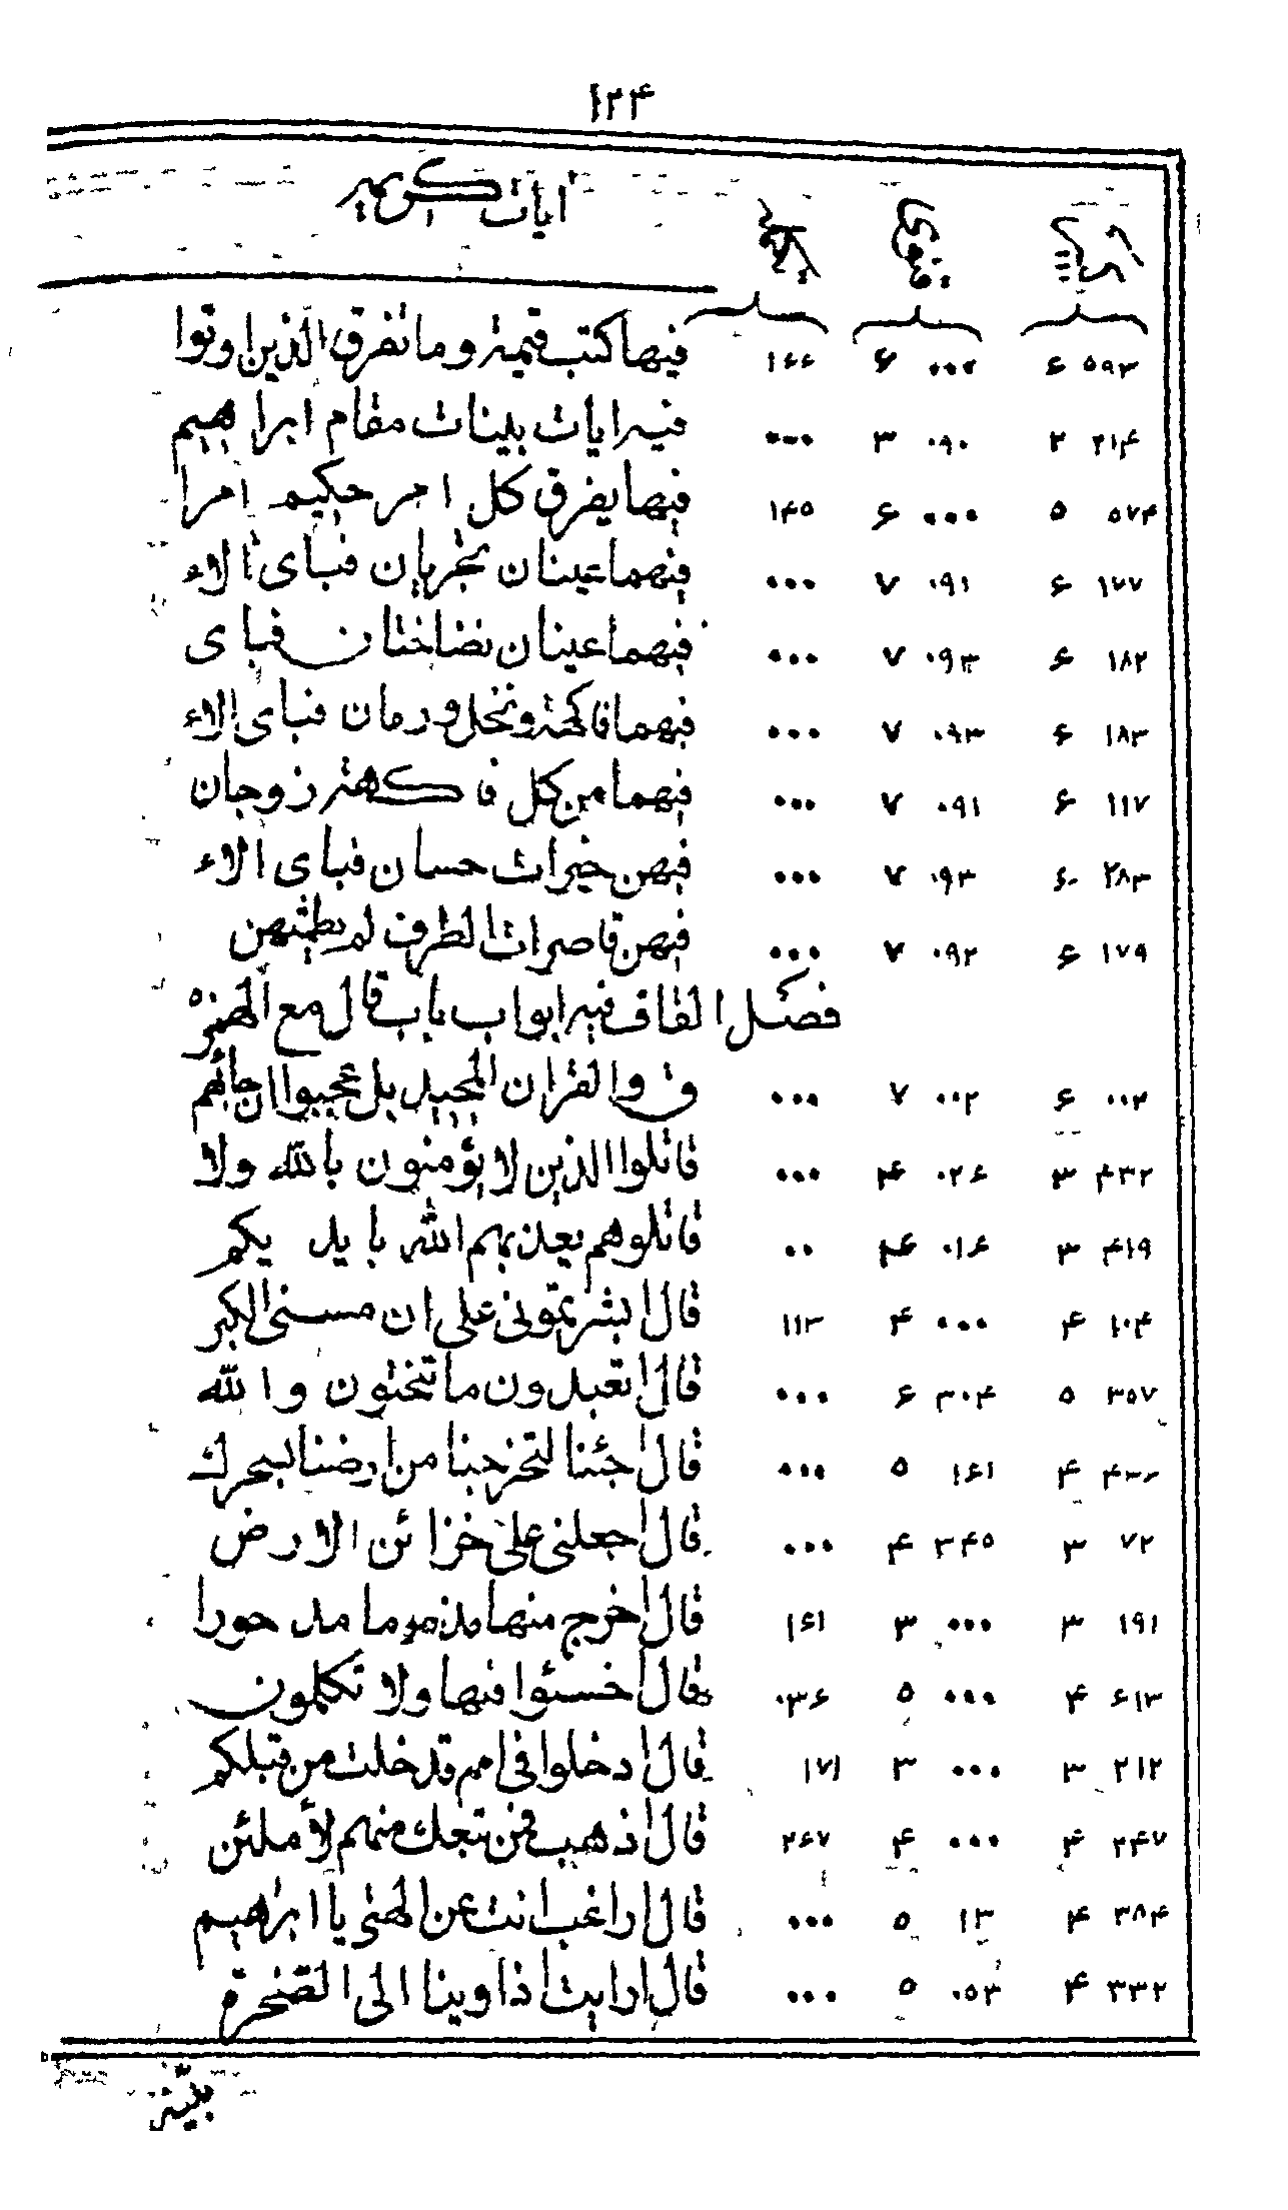 ۱۲۴
ایات کریمه
۵۹۳ ۶ ۰۰۰ ۶ ۱۶۶ فیها کتب قیمة وما تفرق الذین اوتوا
۲۱۴ ۲ ۰۹۰ ۳ ۰۰۰ فیه ایات بینات مقام ابراهیم
۵۷۴ ۵ ۰۰۰ ۶ ۱۴۵ فیها یفرق کل امر حکیم امرا
۱۷۷ ۶ ۰۹۱ ۷ ۰۰۰ فیهما عینان تجریان فبای الاء
۱۸۲ ۶ ۰۹۳ ۷ ۰۰۰ فیهما عینان نضاختان فبای
۱۸۳ ۶ ۰۹۳ ۷ ۰۰۰ فیهما فاکهة ونخل ورمان فبای الاء
۱۱۷ ۶ ۰۹۱ ۷ ۰۰۰ فیهما من کل فاکهة زوجان
۲۸۳ ۶ ۰۹۳ ۷ ۰۰۰ فیهن خیرات حسان فبای الاء
۱۷۹ ۶ ۰۹۲ ۷ ۰۰۰ فیهن قاصرات الطرف لم یطمثهن
فصل القاف فیه ابواب باب قال مع الهمزه
۰۰۲ ۶ ۰۰۲ ۷ ۰۰۰ ق والقران المجید بل عجبوا ان جائهم
۴۳۲ ۳ ۰۲۶ ۴ ۰۰۰ قاتلوا الذین لا یؤمنون بالله ولا
۴۱۹ ۳ ۰۱۶ ۰۰ قاتلوهم یعذبهم الله بایدیکم
۱۰۴ ۴ ۰۰۰ ۴ ۱۱۳ قال ابشرتمونی علی ان مسنی الکبر
۳۵۷ ۵ ۳۰۴ ۶ ۰۰۰ قال اتعبدون ما تنحتون والله
۴ ۱۶۱ ۵ ۰۰۰ قال اجئتنا لتخرجنا من ارضنا بسحرک
۷۲ ۳ ۳۴۵ ۴ ۰۰۰ قال اجعلنی علی خزائن الارض
۱۹۱ ۳ ۰۰۰ ۳ ۱۶۱ قال اخرج منها مذموما مدحورا
۶۱۳ ۴ ۰۰۰ ۵ ۰۳۶ قال اخسئوا فیها ولا تکلمون
۲۱۲ ۳ ۰۰۰ ۳ ۱۷۱ قال ادخلوا فی امم قد خلت من قبلکم
۲۴۷ ۴ ۰۰۰ ۴ ۲۶۷ قال اذهب فمن تبعک منهم لأملئن
۳۸۴ ۴ ۱۳ ۵ ۰۰۰ قال اراغب انت عن الهتی یا ابراهیم
۳۳۲ ۴ ۰۵۳ ۵ ۰۰۰ قال ارایت اذ اوینا الی الصخرة